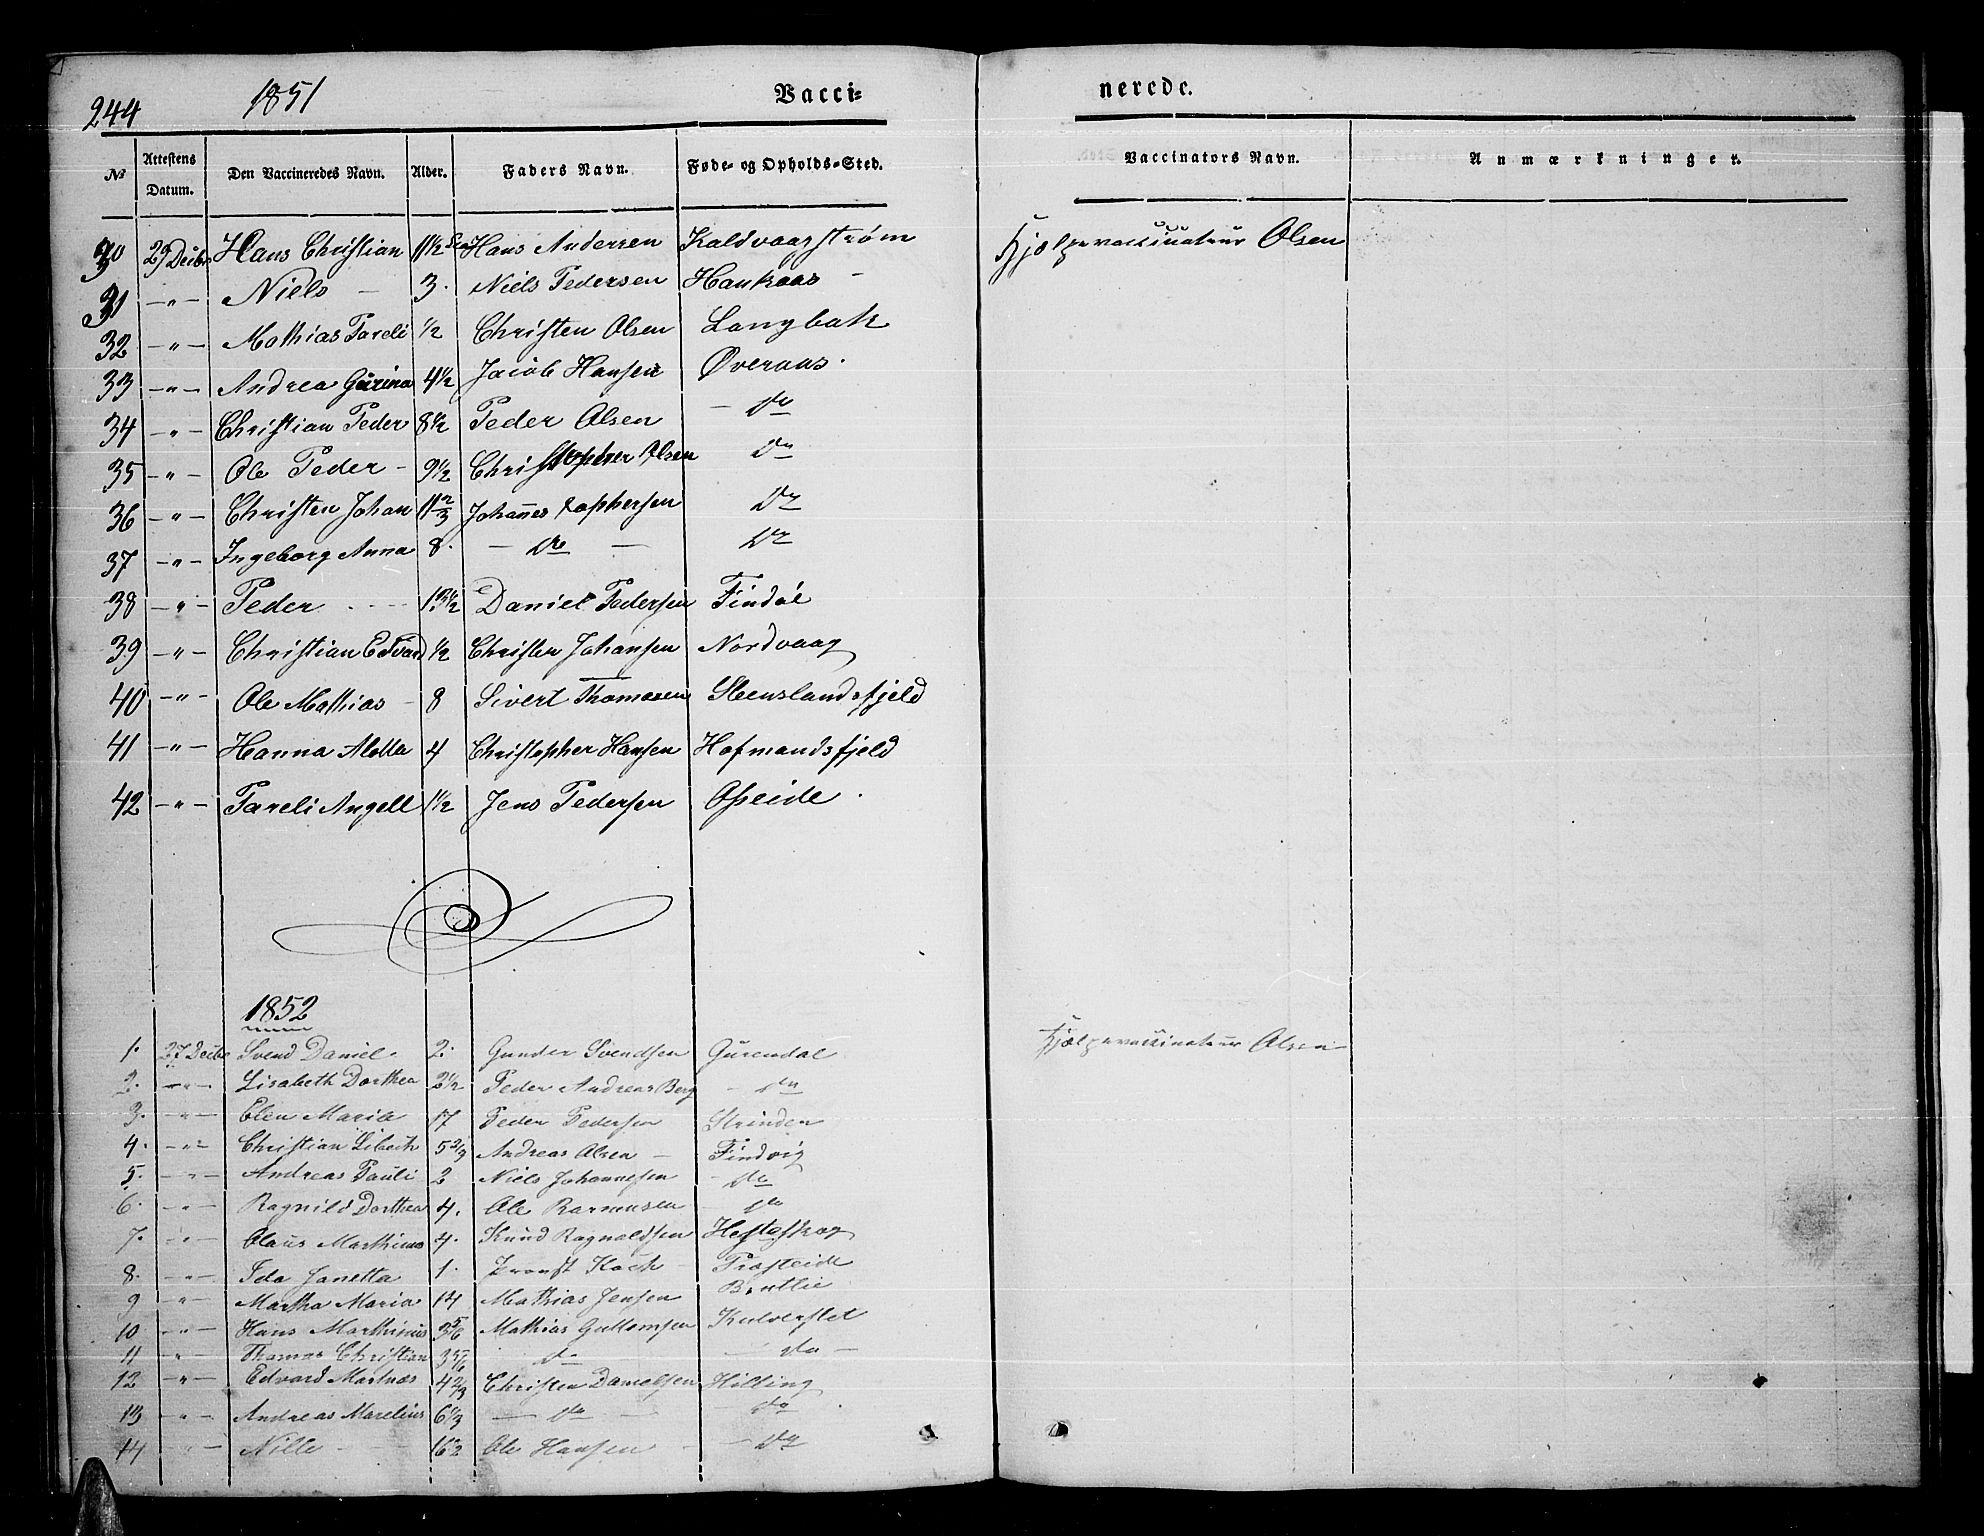 244 1851 Vacci- nerede.
No Attestens Datum. Den Vaccineredes Navn. Alder. Faders Navn. Føde- og Opholds-Sted. Vaccinators Navn. Anmærkninger.
30 29 Decbr Hans Christian 11½ Hans Andersen Kaldvaagstrøm Hjælpevaccinateur Olsen
31 -"- Niels - 3. Niels Pedersen Hankaas -
32 -"- Mathias Pareli ½ Christen Olsen Langbak
33 -"- Andrea Gurina 4½ Jacob Hansen Øveraas.
34 -"- Christian Peder 8½ Peder Olsen - do
35 -"- Ole Peder - 9½ Christopher Olsen do
36 -"- Christen Johan 11⅔ Johannes Tophersen do
37 -"- Ingeborg Anna 8. - do - do
38 -"- Peder Daniel Pedersen Findøe
39 -"- Christian Edvard ½ Christen Johansen Nordvaag
40 -"- Ole Mathias - 8 Sivert Thomesen Steenslandsfjeld
41 -"- Hanna Aletta 4 Christopher Hansen Hofmandsfjeld
42 -"- Pareli Angell 1½ Jens Pedersen Opeide
1852
1. 27 Decbr Svend Daniel. 2. Gunder Svendsen Gurendal Hjælpevaccinateur Olsen
2. -"- Lisabeth Dorthea 2½ Peder Andreas Berg - do
3. -"- Elen Maria 17 Peder Pedersen Strinden
4. -"- Christian Libech 5⅔ Andreas Olsen - Findvig
5. -"- Andreas Pauli 2 Niels Johannesen - do
6. -"- Ragnild Dorthea 4. Ole Rasmusen - do
7. -"- Olaus Marthinus 4. Knud Ragnaldsen Hesteskog
8. -"- Ida Janetta 1. Provst Koch - Præsteide
9 -"- Martha Maria 14 Mathias Jensen Brutlie
10 -"- Hans Marthinus 3⅚ Mathias Guttomsen Kulverstet
11 -"- Thomas Christian 3⅚ do - do -
12 -"- Edvard Martnæs 4⅔ Christen Danielsen Hilling
13 -"- Andreas Marelius 6⅓ - do - do
14 -"- Nille - Ole Hansen - - do